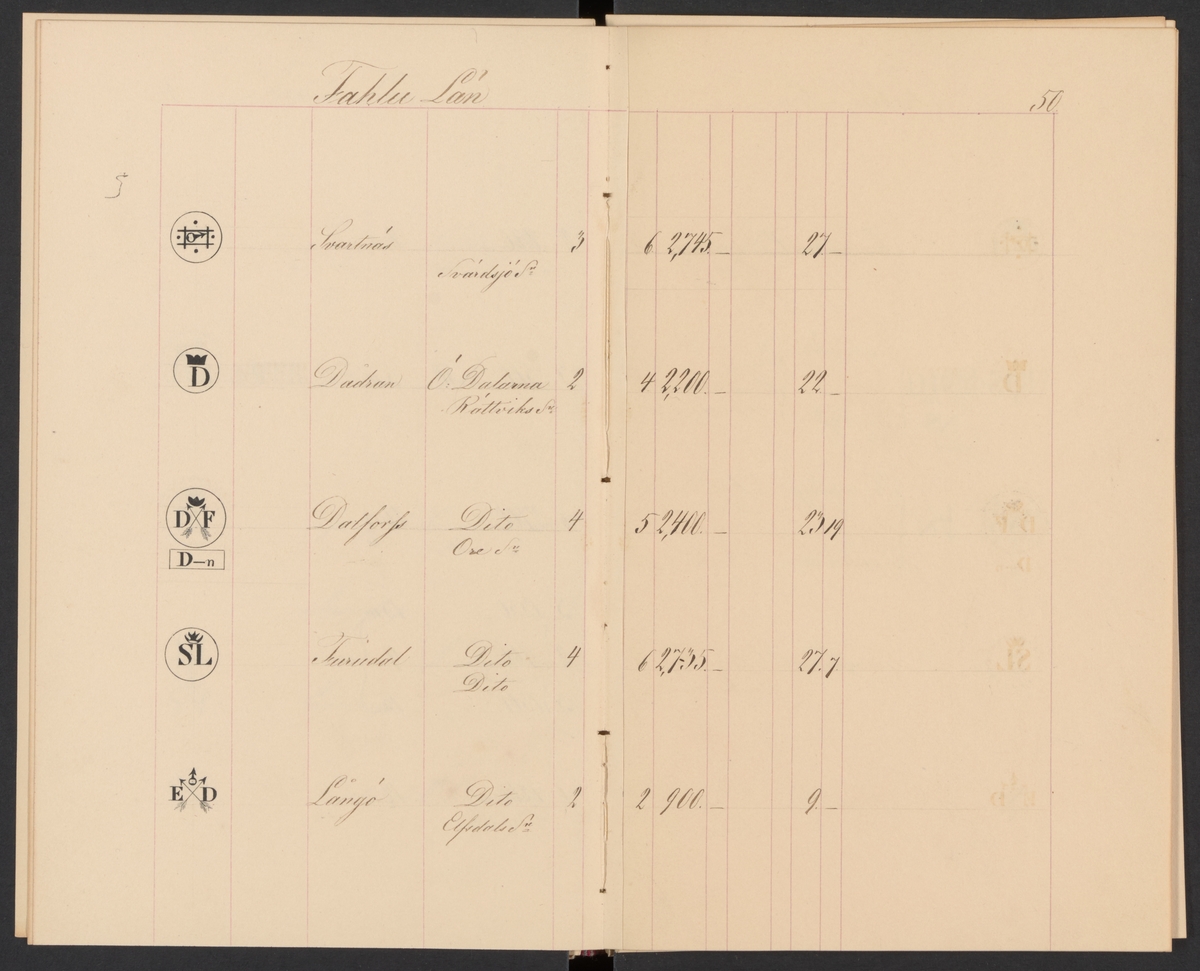 Fahlu Län
50.
Svartnäs 3 6 2,745. — 27. —
Svärdsjö Sn
D Dådran Ö: Dalarna 2 4 2,200. — 22. —
Rättviks Sn
D F Dalforss Dito 4 5 2,400. — 23 19
D—n Ore Sn
SL Furudal Dito 4 6 2,735. — 27. 7.
Dito
E D Långö Dito 2 2 900. — 9. —
Elfsdals Sn